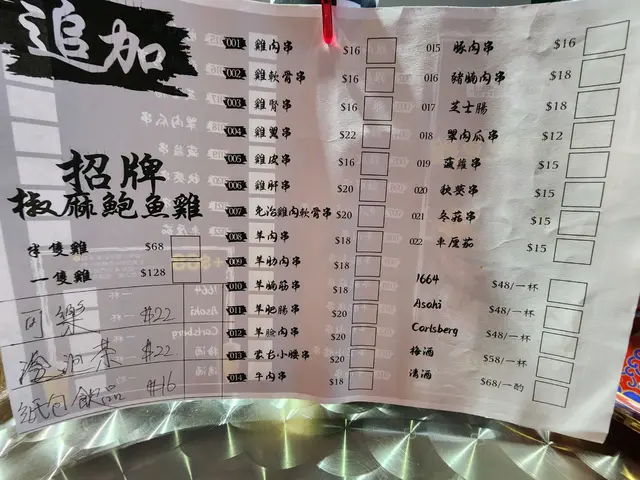 追加
招牌
椒麻鮑魚雞
半隻雞 $68
一隻雞 $128
可樂 #22
#22
紙包飲品 #16
001 雞肉串 $16
002 雞軟骨串 $16
003 雞腎串 $16
004 雞翼串 $22
005 雞皮串 $16
006 雞肝串 $20
007 免治雞肉軟骨串 $20
008 羊肉串 $18
009 羊肋肉串 $18
010 羊腩筋串 $18
011 羊肥腸串 $20
012 羊臉肉串 $20
013 蒙古小腰串 $20
014 牛肉串 $18
015 豚肉串 $16
016 豬腩肉串 $18
017 芝士腸 $18
018 翠肉瓜串 $12
019 菠蘿串 $15
020 秋葵串 $15
021 冬菇串 $15
022 車厘茄 $15
1664 $48/一杯
Asahi $48/一杯
Carlsberg $48/一杯
梅酒 $58/一杯
清酒 $68/一酌